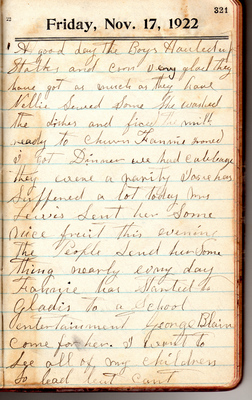 321
Friday, Nov. 17, 1922
A good day the Boys Hauled up
Stalks and Corn very glad they
have got as much as they have
Nellie Sewed Some She washed
the dishes and fixed the milk
ready to churn Fannie ironed
I got Dinner we had cabbage
they were a rarity has
Suffered a lot today Mrs
Lewis Sent her Some
nice fruit this evening
the People Send her Some
thing nearly every day
has Started
Gladis to a School
entertainment George Blain
Come for her. I want to
See all of my children
So bad but cant